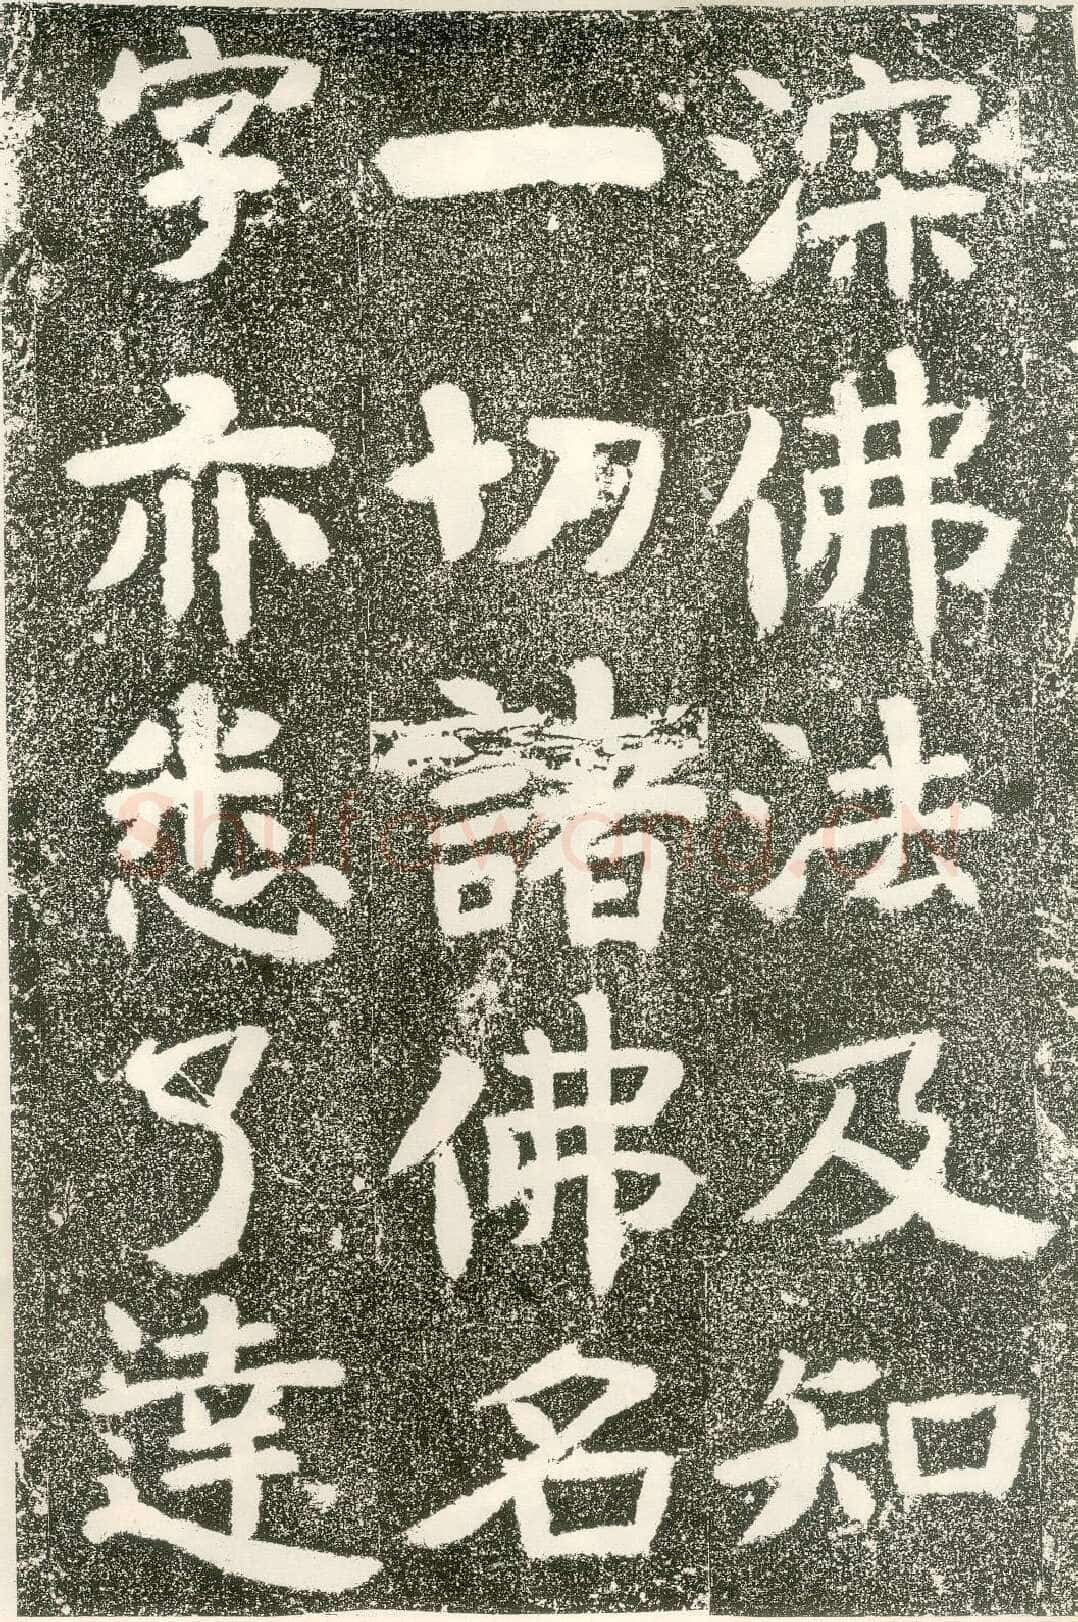 深佛法及知
一切諸佛名
字亦悉了達
Shufawang.CN